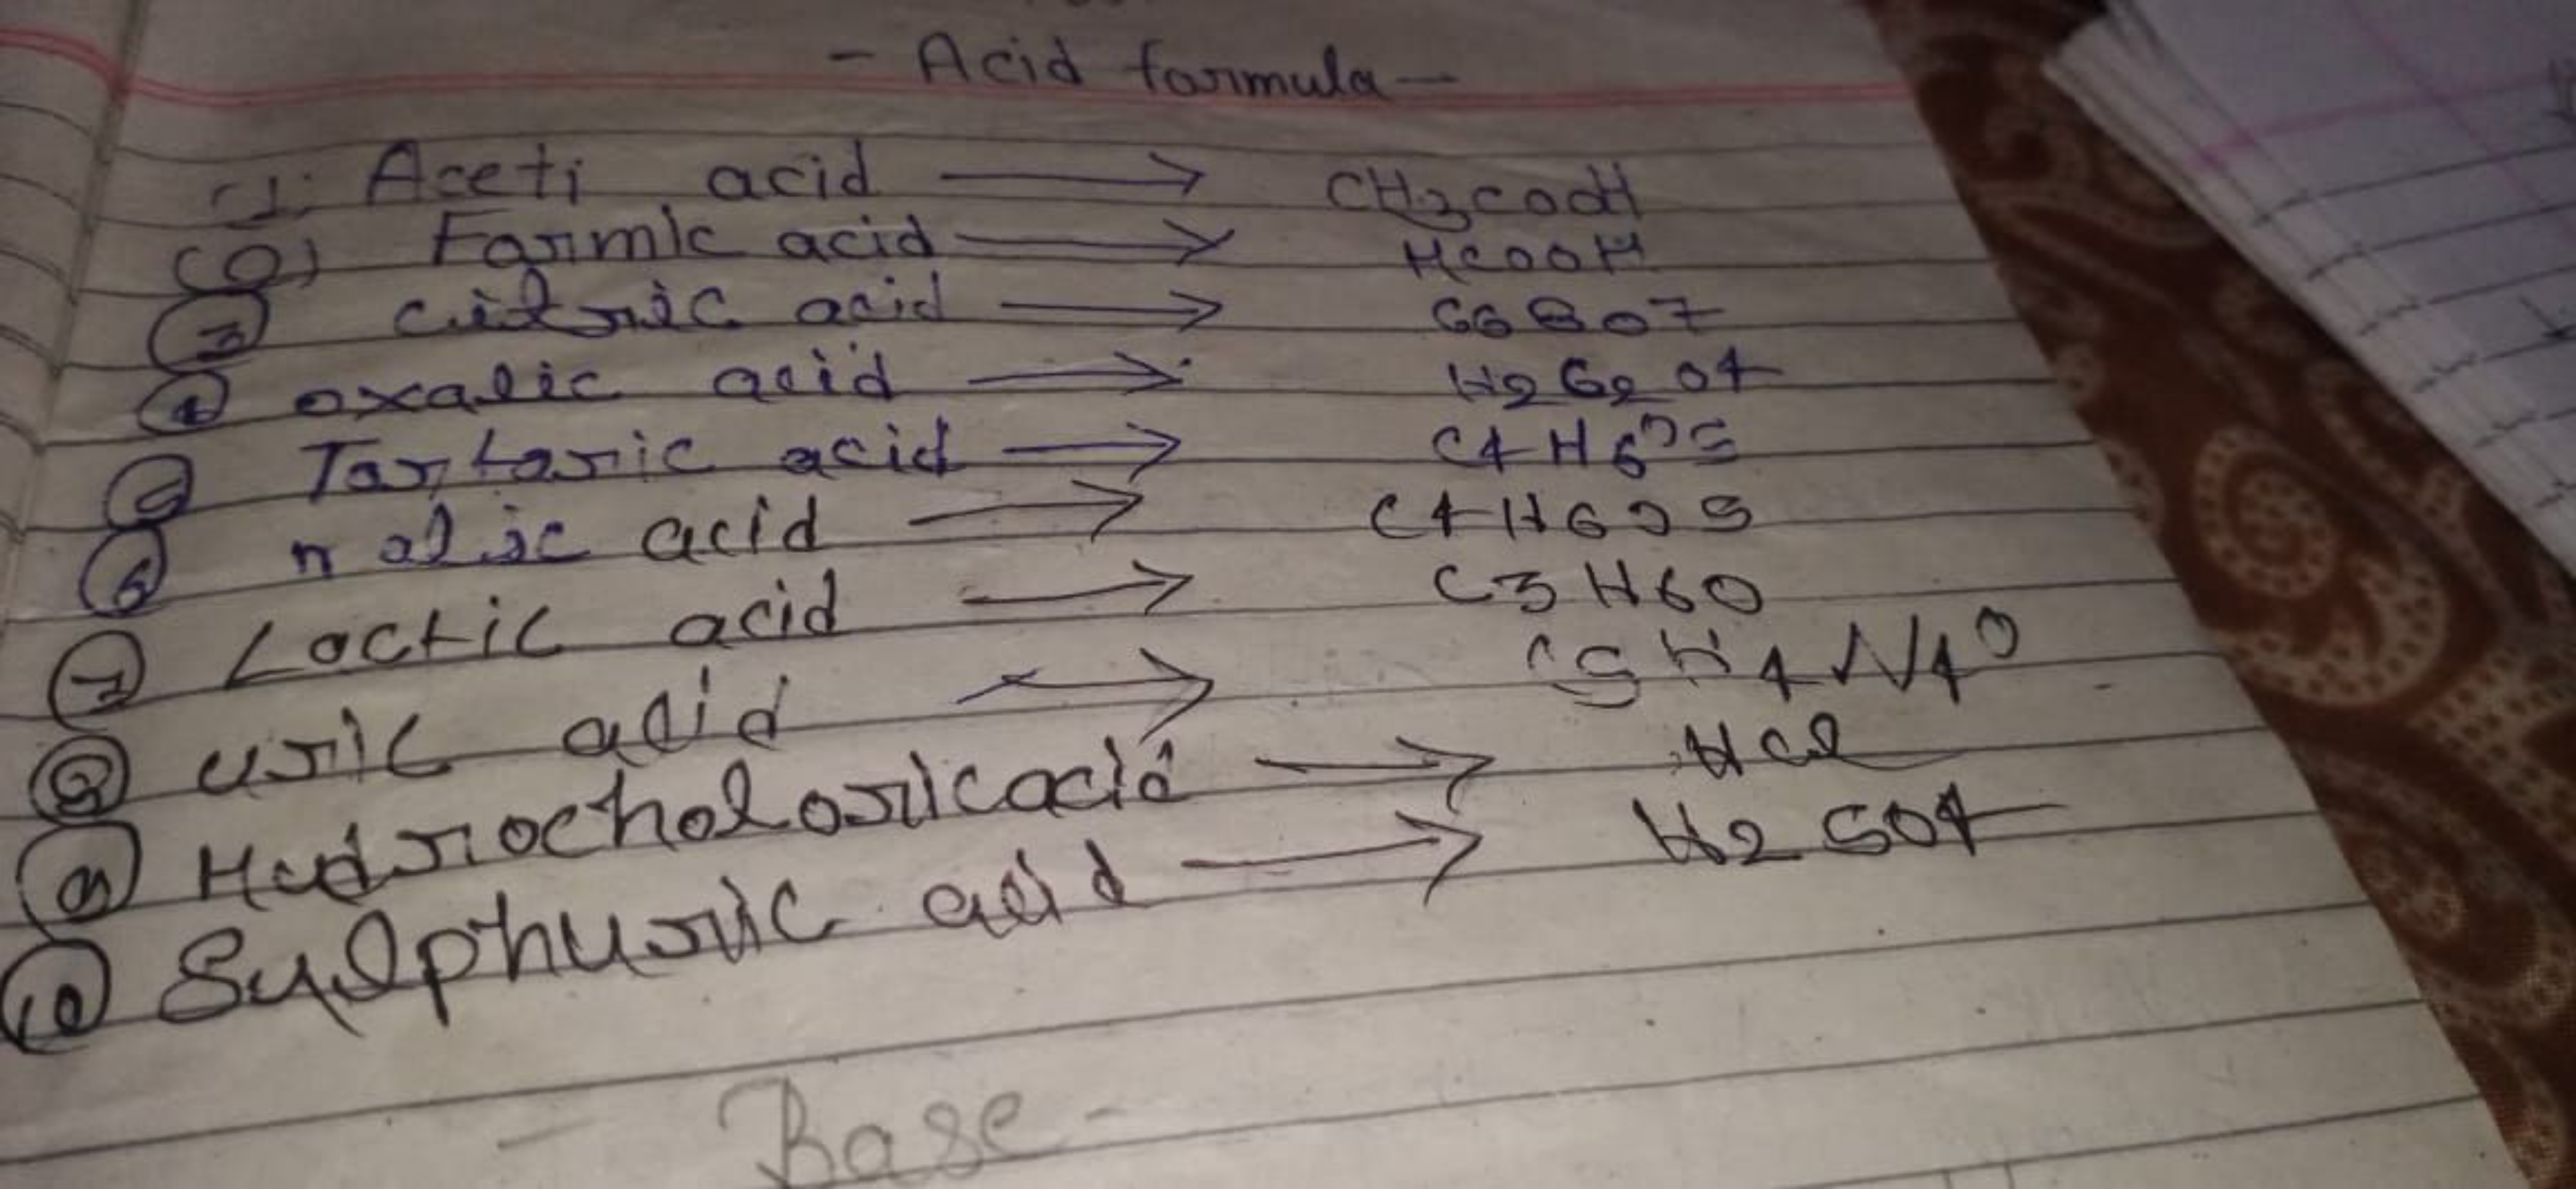 - Acid formula -
(1. Aceti acid → CH3COOH
(2) Formic acid → HCOOH
3 citric acid → C6 8O7
4 oxalic acid → H2C2O4
5 Tartaric acid → C4H6O5
6 malic acid → C4H6O5
7 Lactic acid → C3H6O
8 uric acid → C5H4N4O
9 Hudrocholoric acid → HCl
10 Sulphuric acid → H2SO4
- Base -